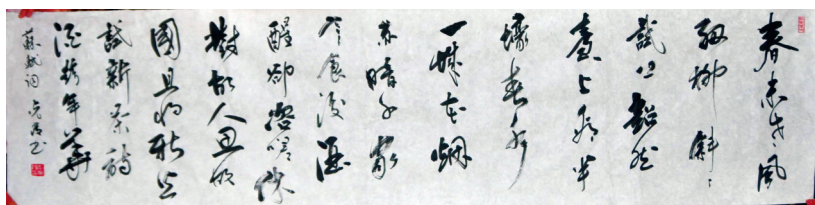 春未老風
細柳斜〻
試上超然
臺上看半
壕春水
一城花烟
雨暗千家
寒食後酒
醒卻咨嗟休
對故人思故
國且將新火
試新茶詩
酒趁年華
蘇軾詞 書